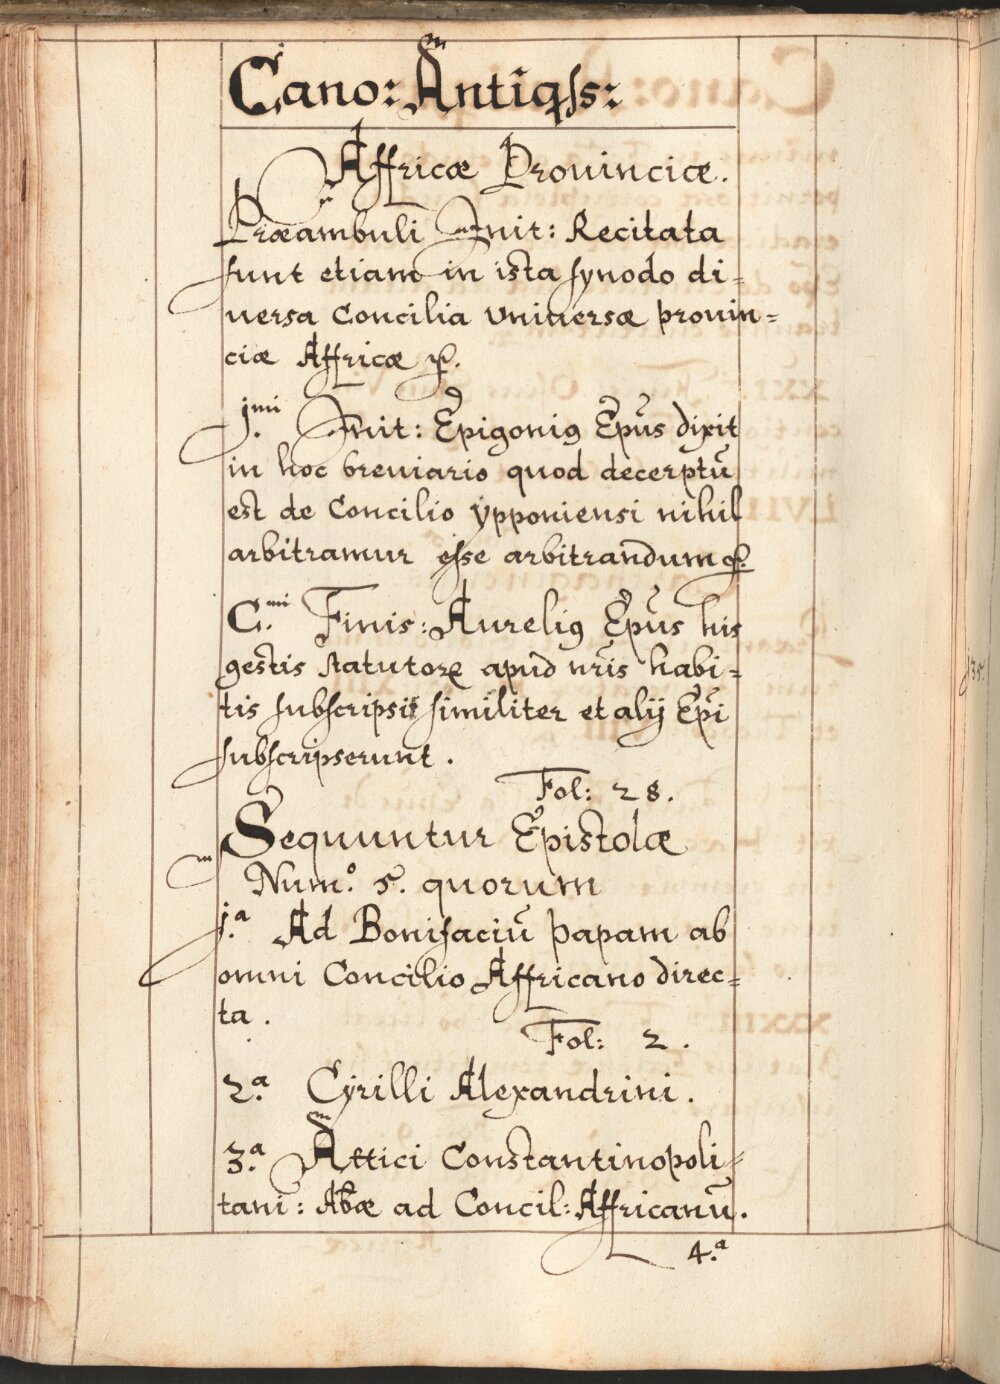 Cano: Antiqſs:
Affricæ Prouinciæ.
Præambuli Init: Recitata
ſunt etiam in ista ſynodo di=
uersa Concilia vniuersæ prouin=
ciæ Affricæ &c.
jmi. Init: Epigonig Epūs dixit
in hoc breuiario quod decerptū
est de Concilio ypponiensi nihil
arbitramur eſse arbitrandum &c.
C.mi Finis: Aurelig Epūs his
gestis statutorꝝ apud nr̄is habi=
tis ſubſcripsit ſimiliter et alij Epī
ſubſcripserunt.
Fol: 28.
Sequuntur Epistolæ
Num.o 5. quorum
j.a Ad Bonifaciū papam ab
omni Concilio Affricano direc=
ta.
Fol: 2.
2.a Cyrilli Alexandrini.
3.a Attici Constantinopoli=
tani: Abæ ad Concil: Affricanū.
4.a
135.